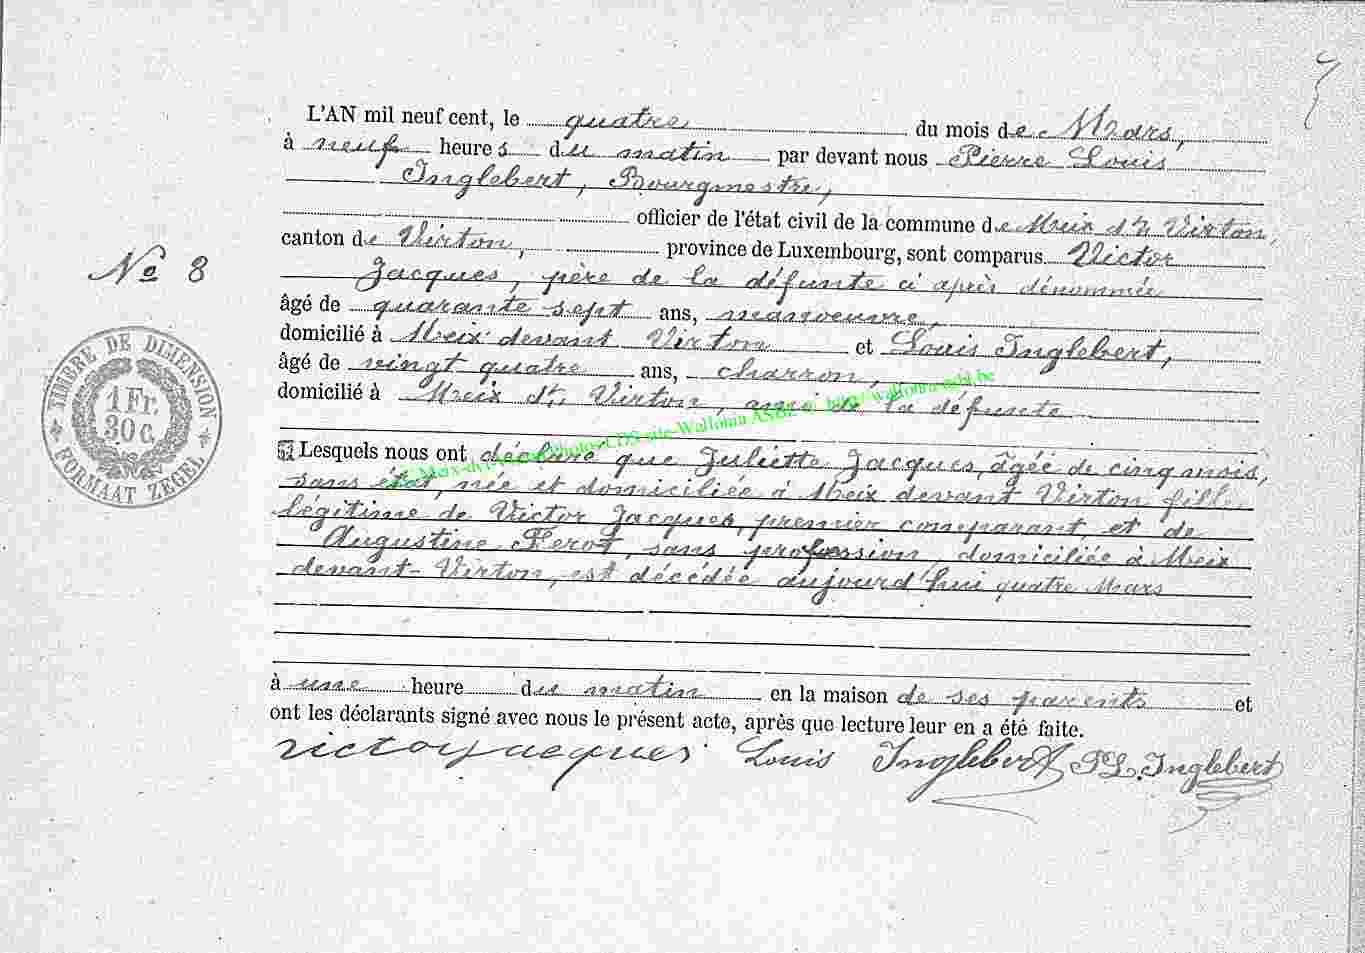 L'AN mil neuf cent, le quatre du mois de Mars,
à neuf heures du matin par devant nous Pierre Louis
Inglebert, Bourgmestre,
officier de l'état civil de la commune de Meix dt Virton,
canton de Virton, province de Luxembourg, sont comparus Victor
Jacques, père de la défunte ci après dénommée
âgé de quarante sept ans, manoeuvre,
domicilié à Meix devant Virton et Louis Inglebert,
âgé de vingt quatre ans, charron,
domicilié à Meix dt Virton, ami de la défuncte
Lesquels nous ont déclaré que Juliette Jacques, âgée de cinq mois,
sans état, née et domiciliée à Meix devant Virton fille
légitime de Victor Jacques, premier comparant, et de
Augustine Ferot, sans profession, domiciliée à Meix
devant-Virton, est décédée aujourd'hui quatre Mars
à une heure du matin en la maison de ses parents et
ont les déclarants signé avec nous le présent acte, après que lecture leur en a été faite.
victor jacques Louis Inglebert P L Inglebert
No 8
TIMBRE DE DIMENSION
1 Fr.
30 C.
FORMAAT ZEGEL